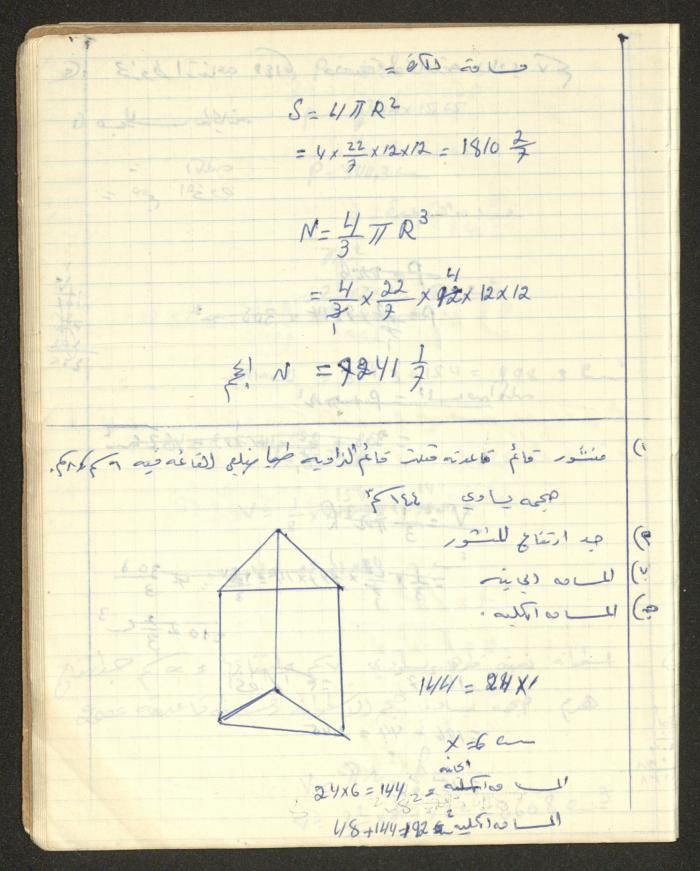 مساحة الكرة =
S = 4 π R²
= 4 × 22/7 × 12 × 12 = 1810 2/7
N = 4/3 π R³
= 4/3 × 22/7 × 12 × 12 × 12
4
1
N = 7241 1/7
١) منشور قائم قاعدته مثلث قائم الزاوية طول ضلعي القائمة فيه ٦ سم ٨ سم.
حجمه يساوي ١٤٤ سم٣
جد ارتفاع المنشور
ب) المساحة الجانبية
ج) المساحة الكلية.
144 = 24 × x
x = 6 cm
الجانبية
المساحة = 144 = 24×6
المساحة الكلية = 48+144